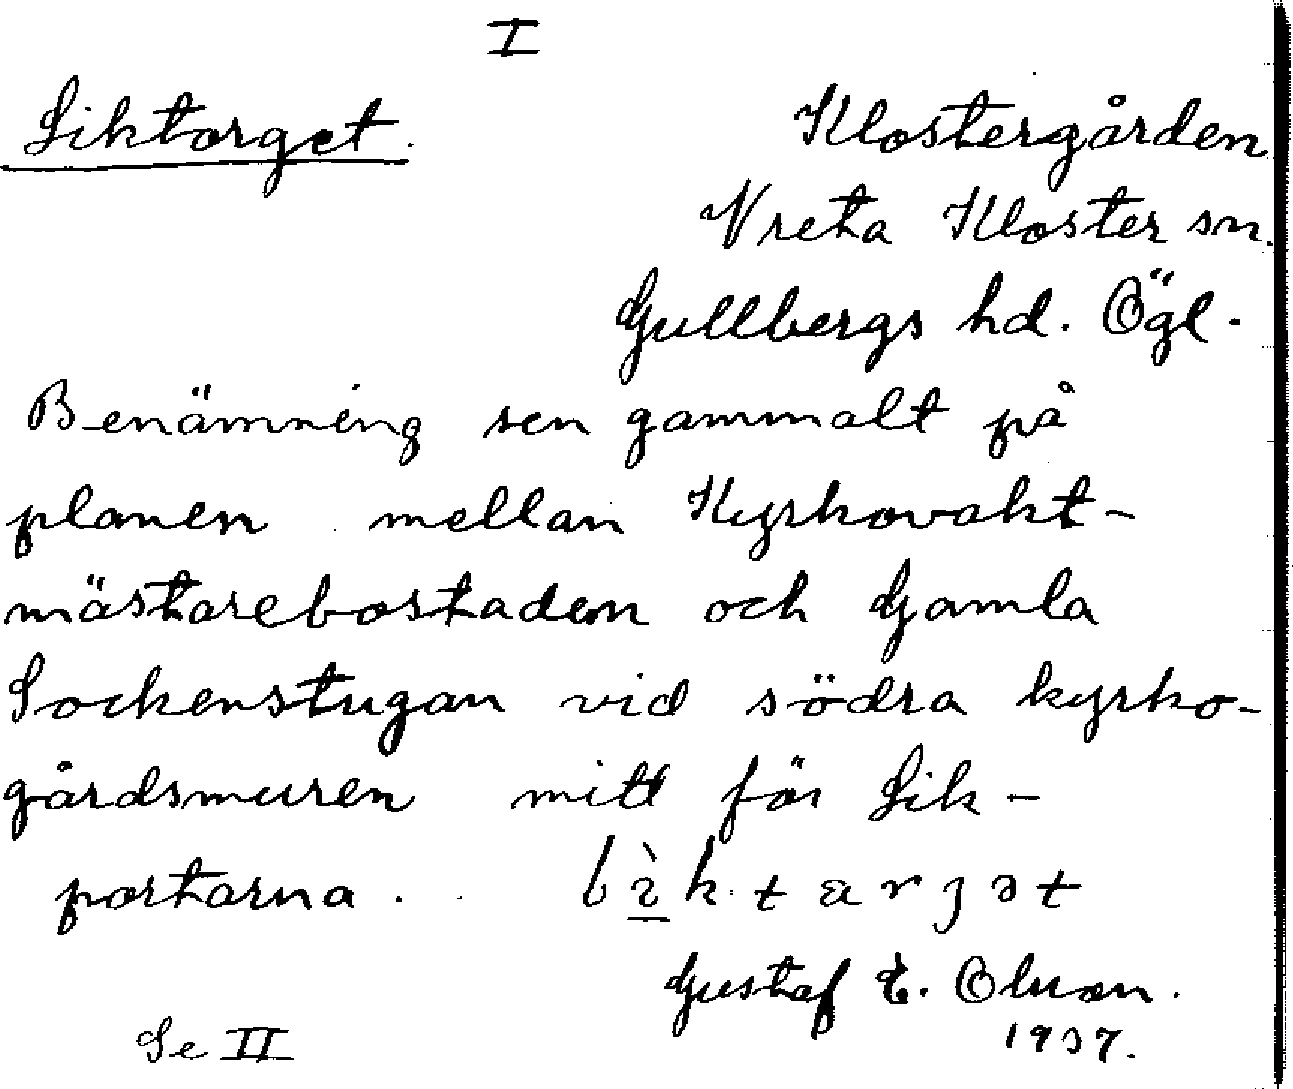 I
Liktorget.
Klostergården
Vreta Kloster sn.
Gullbergs hd. Ögl.
Benämning sen gammalt på
planen mellan Kyrkovakt-
mästarebostaden och Gamla
Sockenstugan vid södra kyrko-
gårdsmuren mitt för Lik-
portarna.
Gustaf E. Olsson.
1937.
Se II